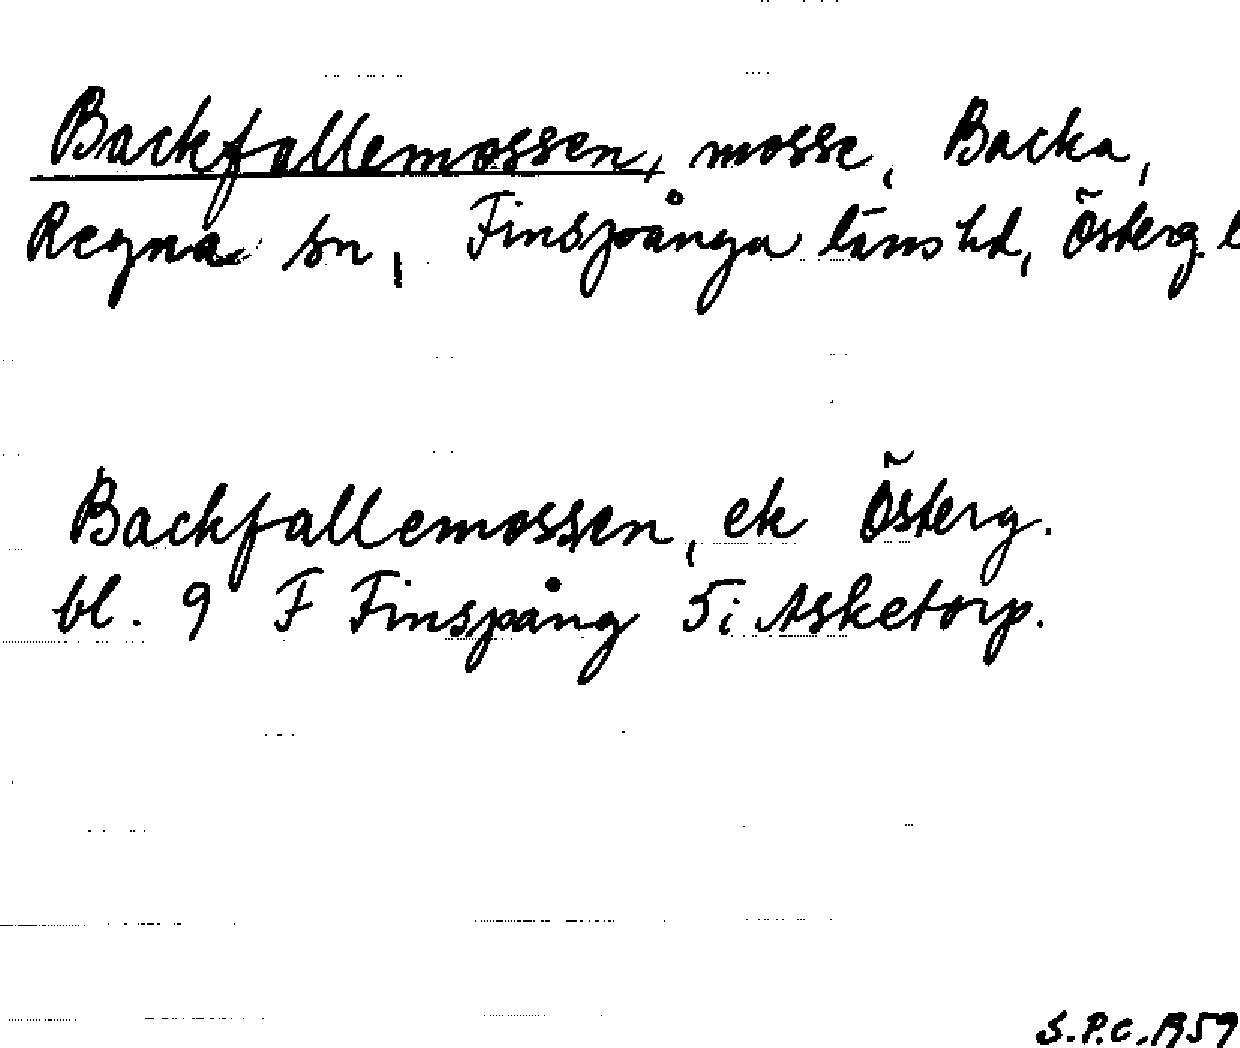 Backfallemossen, mosse, Backa,
Regna sn, Finspånga läns hd, Österg. l
Backfallemossen, ek Österg.
bl. 9 F Finspång 5 i Asketorp.
S.P.C. 1959